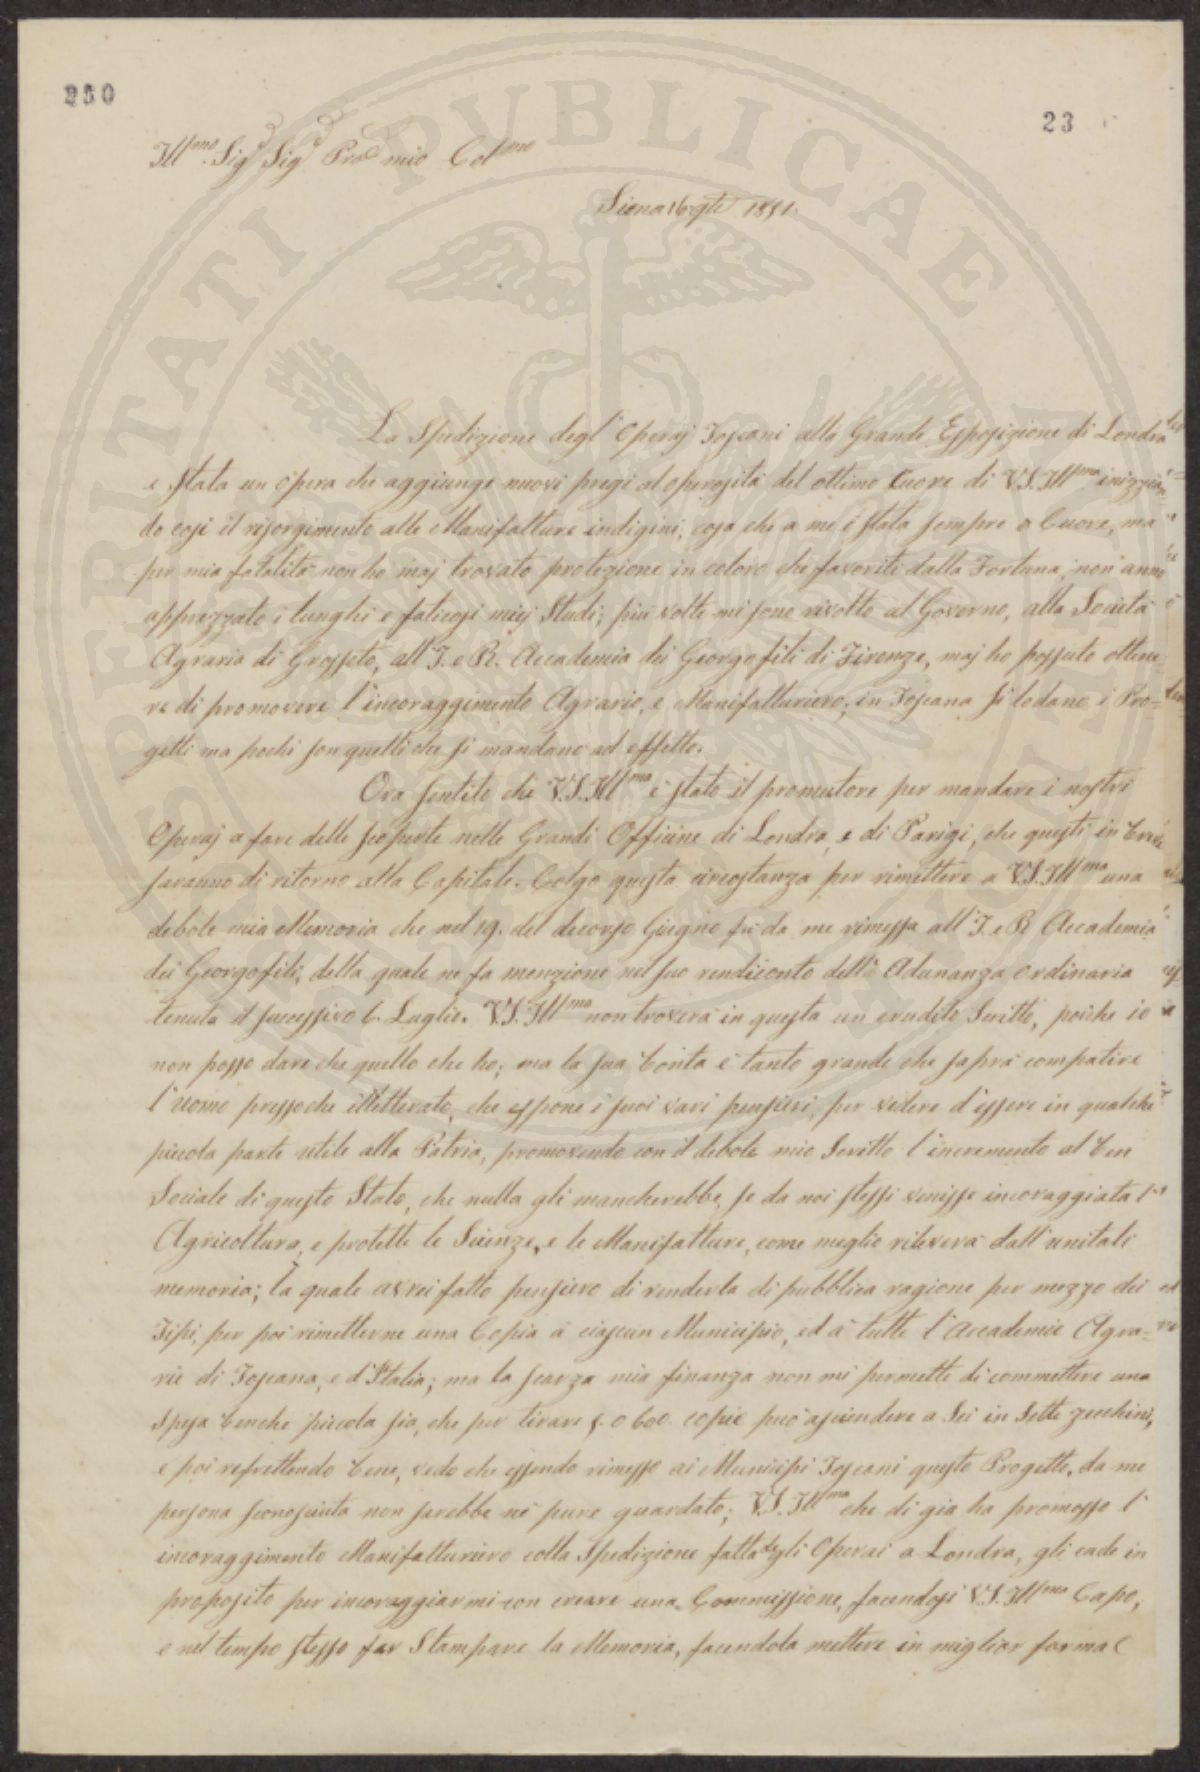 250
23
Ill.mo Sig.r Sig.r Pro.e mio Col.mo
Siena 16 9bre 1851.
La Spedizione degl'Operaj Toscani alla Grande Esposizione di Londra
e stata un opera che aggiunge nuovi pregi al operosità del ottimo Cuore di V.S. Ill.ma inizzian-
do così il risorgimento alle Manifatture indigini, cosa che a me è stata sempre a Cuore, ma
per mia fatalità non ho maj trovato protezione in coloro che favoriti dalla Fortuna, non anno
apprezzato i lunghi e faticosi miej Studi; più volte mi sono rivolto al Governo, alla Società
Agraria di Grosseto, all'I. e R. Accademia dei Georgofili di Firenze, maj ho possuto ottene-
re di promovere l'incoraggimento Agrario, e Manifatturiero; in Toscana si lodano i Pro-
getti ma pochi son quelli che si mandano ad effetto.
Ora sentito che V.S. Ill.ma è stato il promutore per mandare i nostri
Operaj a fare delle scoperte nelle Grandi Officine di Londra, e di Parigi, che questi in breve
saranno di ritorno alla Capitale. Colgo questa circostanza per rimettere a V.S. Ill.ma una
debole mia Memoria che nel 19. del decorso Giugno fù da me rimessa all'I. e R. Accademia
dei Georgofili, della quale ne fa menzione nel suo rendiconto della Adunanza ordinaria
tenuta il successivo 6. Luglio. V.S. Ill.ma non troverà in questa un erudito Scritto, poiche io
non posso dare che quello che ho; ma la sua bontà è tanto grande che saprà compatire
l'uomo pressoche illetterato, che espone i suoi vari pensieri, per vedere d'essere in qualche
piccola parte utile alla Patria, promovendo con il debole mio Scritto l'incremento al ben
Sociale di questo Stato, che nulla gli mancherebbe, se da noi stessi venisse incoraggiata l'
Agricoltura, e protette le Scienze, e le Manifatture, come meglio rileverà dall'unitali
memoria; la quale avrei fatto pensiero di renderla di pubblica ragione per mezzo dei
Tipi, per poi rimetterne una Copia a ciascun Municipio, ed a tutte l'Accademie Agra-
rie di Toscana, e d'Italia; ma la scarza mia finanza non mi permette di commettere una
spesa benche piccola sia, che per tirare 5. o 600 copie può ascendere a Sei in Sette zecchini,
e poi reflettendo bene, vedo che essendo rimesso ai Municipi Toscani questo Progetto, da me
persona sconosciuta non sarebbe nè pure guardato; V.S. Ill.ma che di gia ha promosso l'
incoraggimento Manifatturiero colla Spedizione fatta degli Operai a Londra, gli cade in
proposito per incoraggiarmi con creare una Commissione, facendosi V.S. Ill.ma Capo,
e nel tempo stesso far Stampare la Memoria, facendola mettere in miglior forma